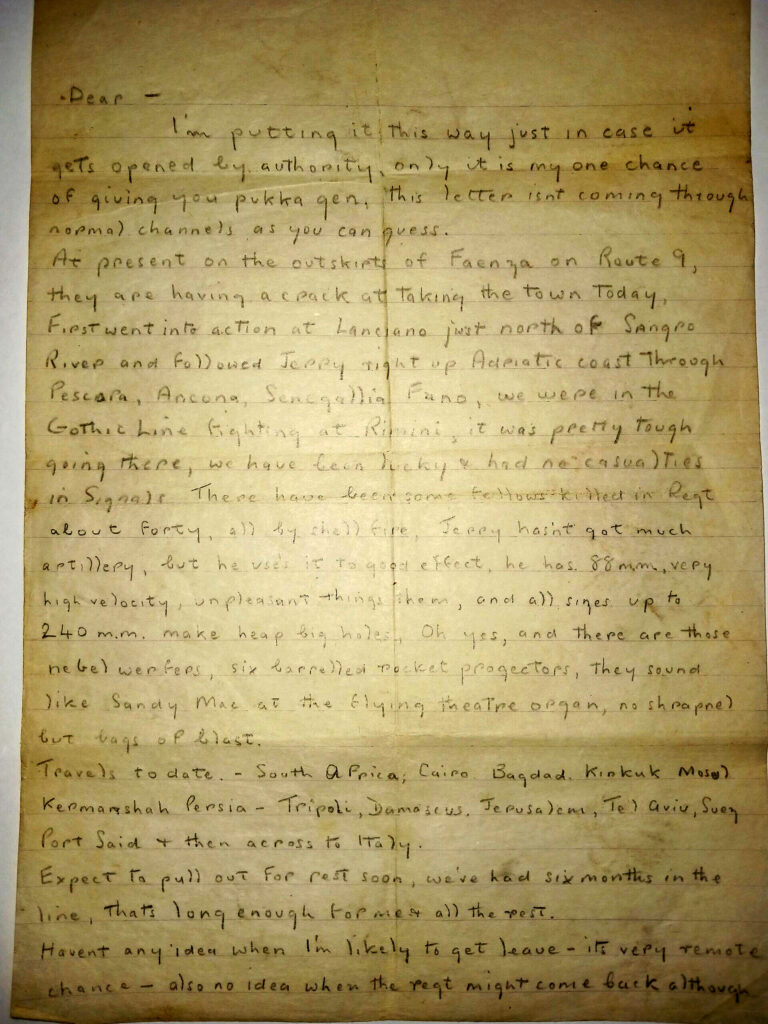 Dear -
I'm putting it this way just in case it
gets opened by authority, only it is my one chance
of giving you pukka gen, this letter isnt coming through
normal channels as you can guess.
At present on the outskirts of Faenza on Route 9,
they are having a crack at taking the town today,
First went into action at Lanciano just north of Sangro
River and followed Jerry right up Adriatic coast through
Pescara, Ancona, Senegallia Fano, we were in the
Gothic Line fighting at Rimini, it was pretty tough
going there, we have been lucky & had no casualties
in Signals. There have been some fellows killed in Regt
about forty, all by shell fire, Jerry hasn't got much
artillery, but he uses it to good effect, he has 88 m.m., very
high velocity, unpleasant things them, and all sizes up to
240 m.m. make heap big holes, Oh yes, and there are those
nebel werfers, six barrelled rocket progectors, they sound
like Sandy Mac at the flying theatre organ, no shrapnel
but bags of blast.
Travels to date. - South Africa, Cairo. Bagdad. Kirkuk Mosul
Kermanshah Persia - Tripoli, Damascus. Jerusalem, Tel Aviv, Suez
Port Said & then across to Italy.
Expect to pull out for rest soon, we've had six months in the
line, thats long enough for me & all the rest.
Havent any idea when I'm likely to get leave - its very remote
chance - also no idea when the regt might come back although